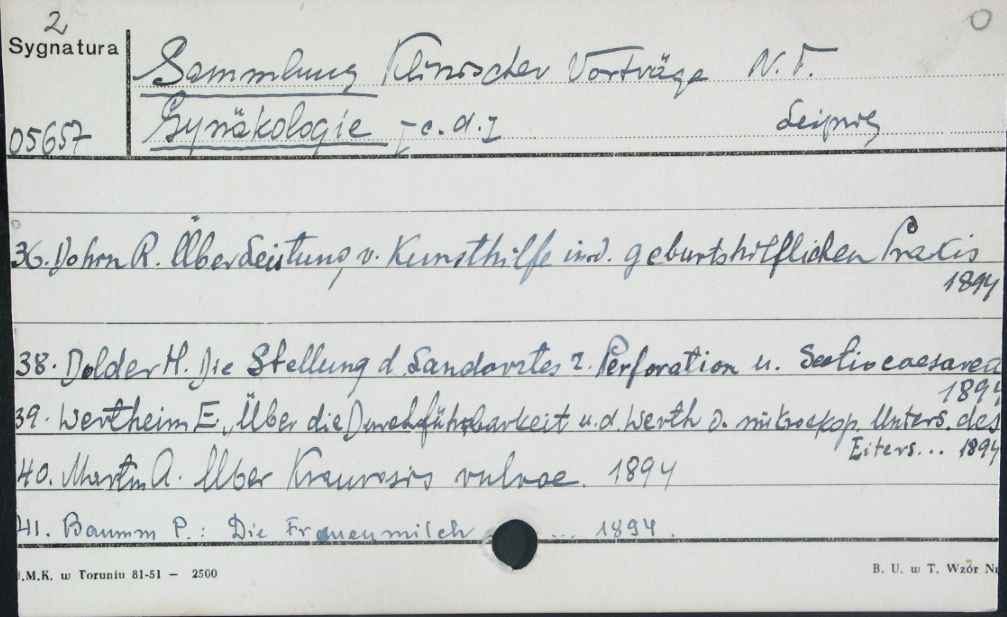 2
Sygnatura
05657
Sammlung Klinischer Vorträge N. F.
Gynäkologie [c.d.] Leipzig
36. Dohrn R. Über Leistung v. Kunsthilfe in d. geburtshilflichen Praxis
1894
38. Dolder H. Die Stellung d. Landarztes z. Perforation u. Sectio caesarea
1894
39. Wertheim E. Über die Durchführbarkeit u. d. Werth d. mikroskop. Unters. des
Eiters... 1894
40. Martin A. Über Kraurosis vulvae. 1894
41. Baumm P.: Die Frauenmilch ... 1894.
.M.K. w Toruniu 81-51 — 2500
B. U. w T. Wzór Nr